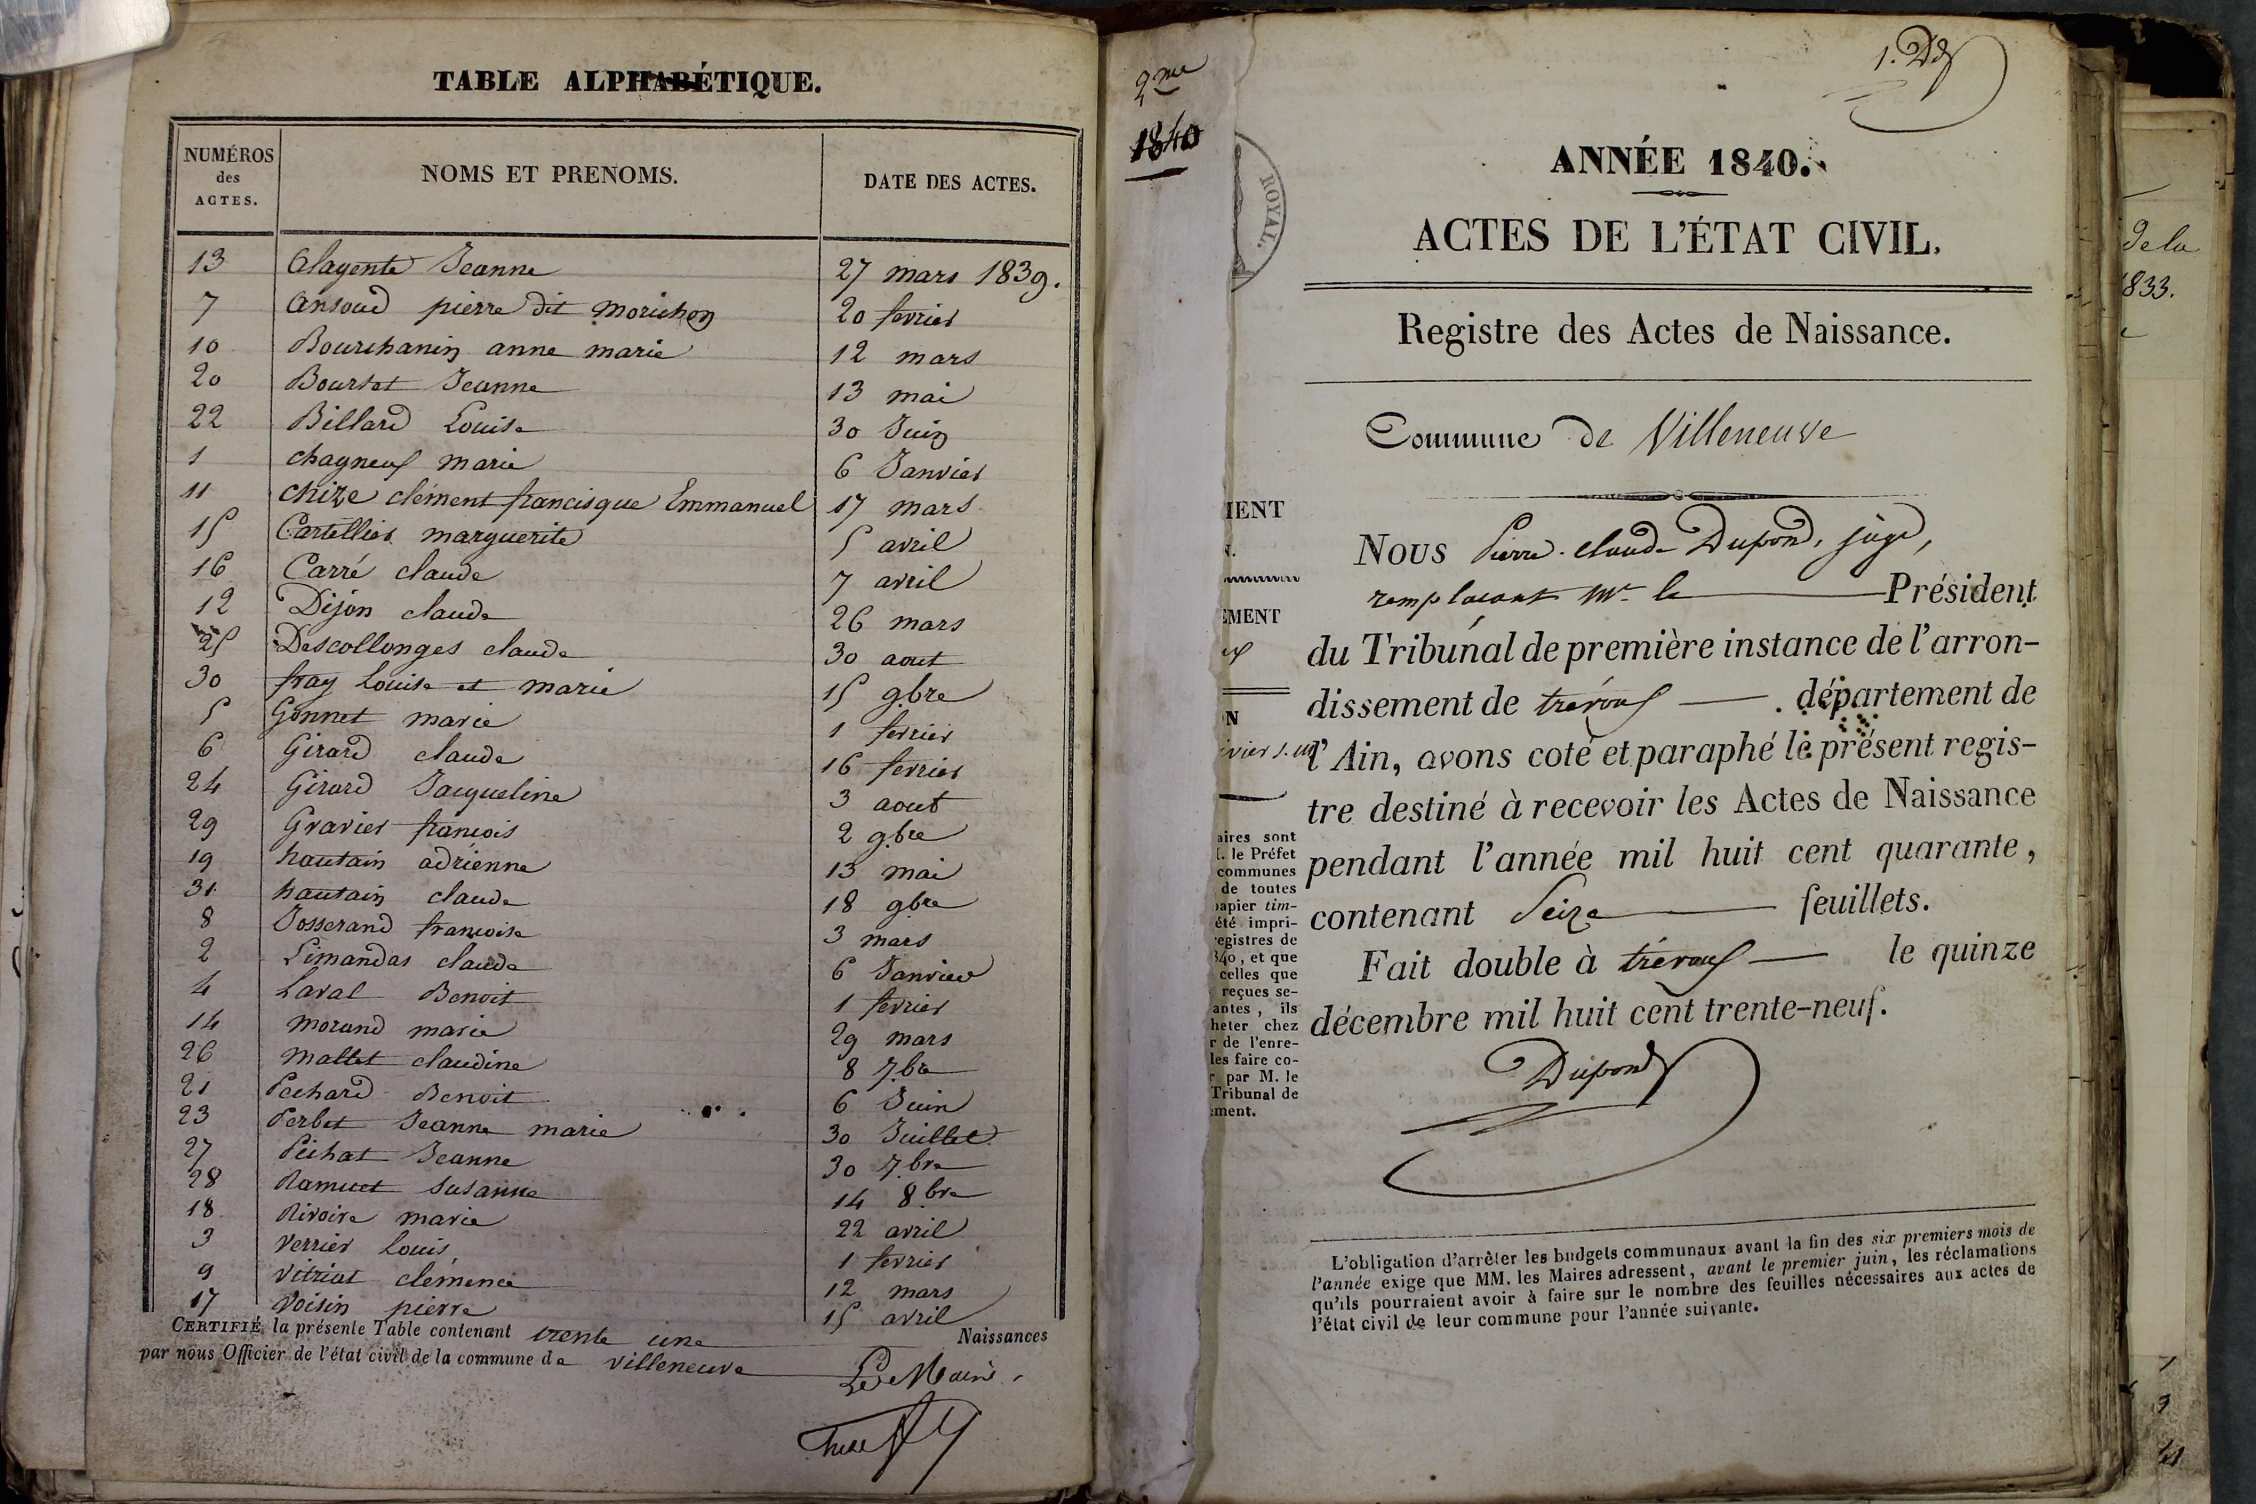 TABLE ALPHABÉTIQUE.
NUMÉROS des ACTES. NOMS ET PRENOMS. DATE DES ACTES.
13 alagente Jeanne 27 mars 1839.
7 ansoud pierre dit morichon 20 fevrier
10 Bourchanin anne marie 12 mars
20 Boursat Jeanne 13 mai
22 Billard Louise 30 Juin
1 chagneux marie 6 Janvier
11 chize clément francisque Emmanuel 17 mars
15 Cartellier marguerite 5 avril
16 Carré claude 7 avril
12 Dijon claude 26 mars
25 Descollonges claude 30 aout
30 fray Louise et marie 15 9bre
5 Gonnet marie 1 fevrier
6 Girard claude 16 fevrier
24 Girard Jacqueline 3 aout
29 Gravier françois 2 9bre
19 hautain adrienne 13 mai
31 hautain claude 18 9bre
8 Josserand francoise 3 mars
2 Limandas claude 6 Janvier
4 Laval Benoit 1 fevrier
14 morand marie 29 mars
26 mallet claudine 8 7.bre
21 Pechard Benoit 6 Juin
23 Perbet Jeanne marie 30 Juillet
27 Pichat Jeanne 30 7.bre
28 Ramuet susanne 14 8.bre
18 Rivoire marie 22 avril
3 verrier Louis 1 fevrier
9 vitriat clémence 12 mars
17 voisin pierre 15 avril
CERTIFIÉ la présente Table contenant trente une Naissances
par nous Officier de l'état civil de la commune de villeneuve
Le Maire
2me
1840
ROYAL.
MENT
EMENT
aires sont
. le Préfet
communes
de toutes
papier tim-
été impri-
registres de
840, et que
celles que
reçues se-
antes, ils
heter chez
r de l'enre-
les faire co-
r par M. le
Tribunal de
ement.
ANNÉE 1840.
ACTES DE L'ÉTAT CIVIL.
Registre des Actes de Naissance.
Commune de Villeneuve
Nous Pierre-claude Dupond, juge,
remplacant Mr le Président
du Tribunal de première instance de l'arron-
dissement de trévoux département de
l'Ain, avons coté et paraphé le présent regis-
tre destiné à recevoir les Actes de Naissance
pendant l'année mil huit cent quarante,
contenant Seize feuillets.
Fait double à trévoux le quinze
décembre mil huit cent trente-neuf.
Dupond
L'obligation d'arrêter les budgets communaux avant la fin des six premiers mois de
l'année exige que MM. les Maires adressent, avant le premier juin, les réclamations
qu'ils pourraient avoir à faire sur le nombre des feuilles nécessaires aux actes de
l'état civil de leur commune pour l'année suivante.
de la
1833.